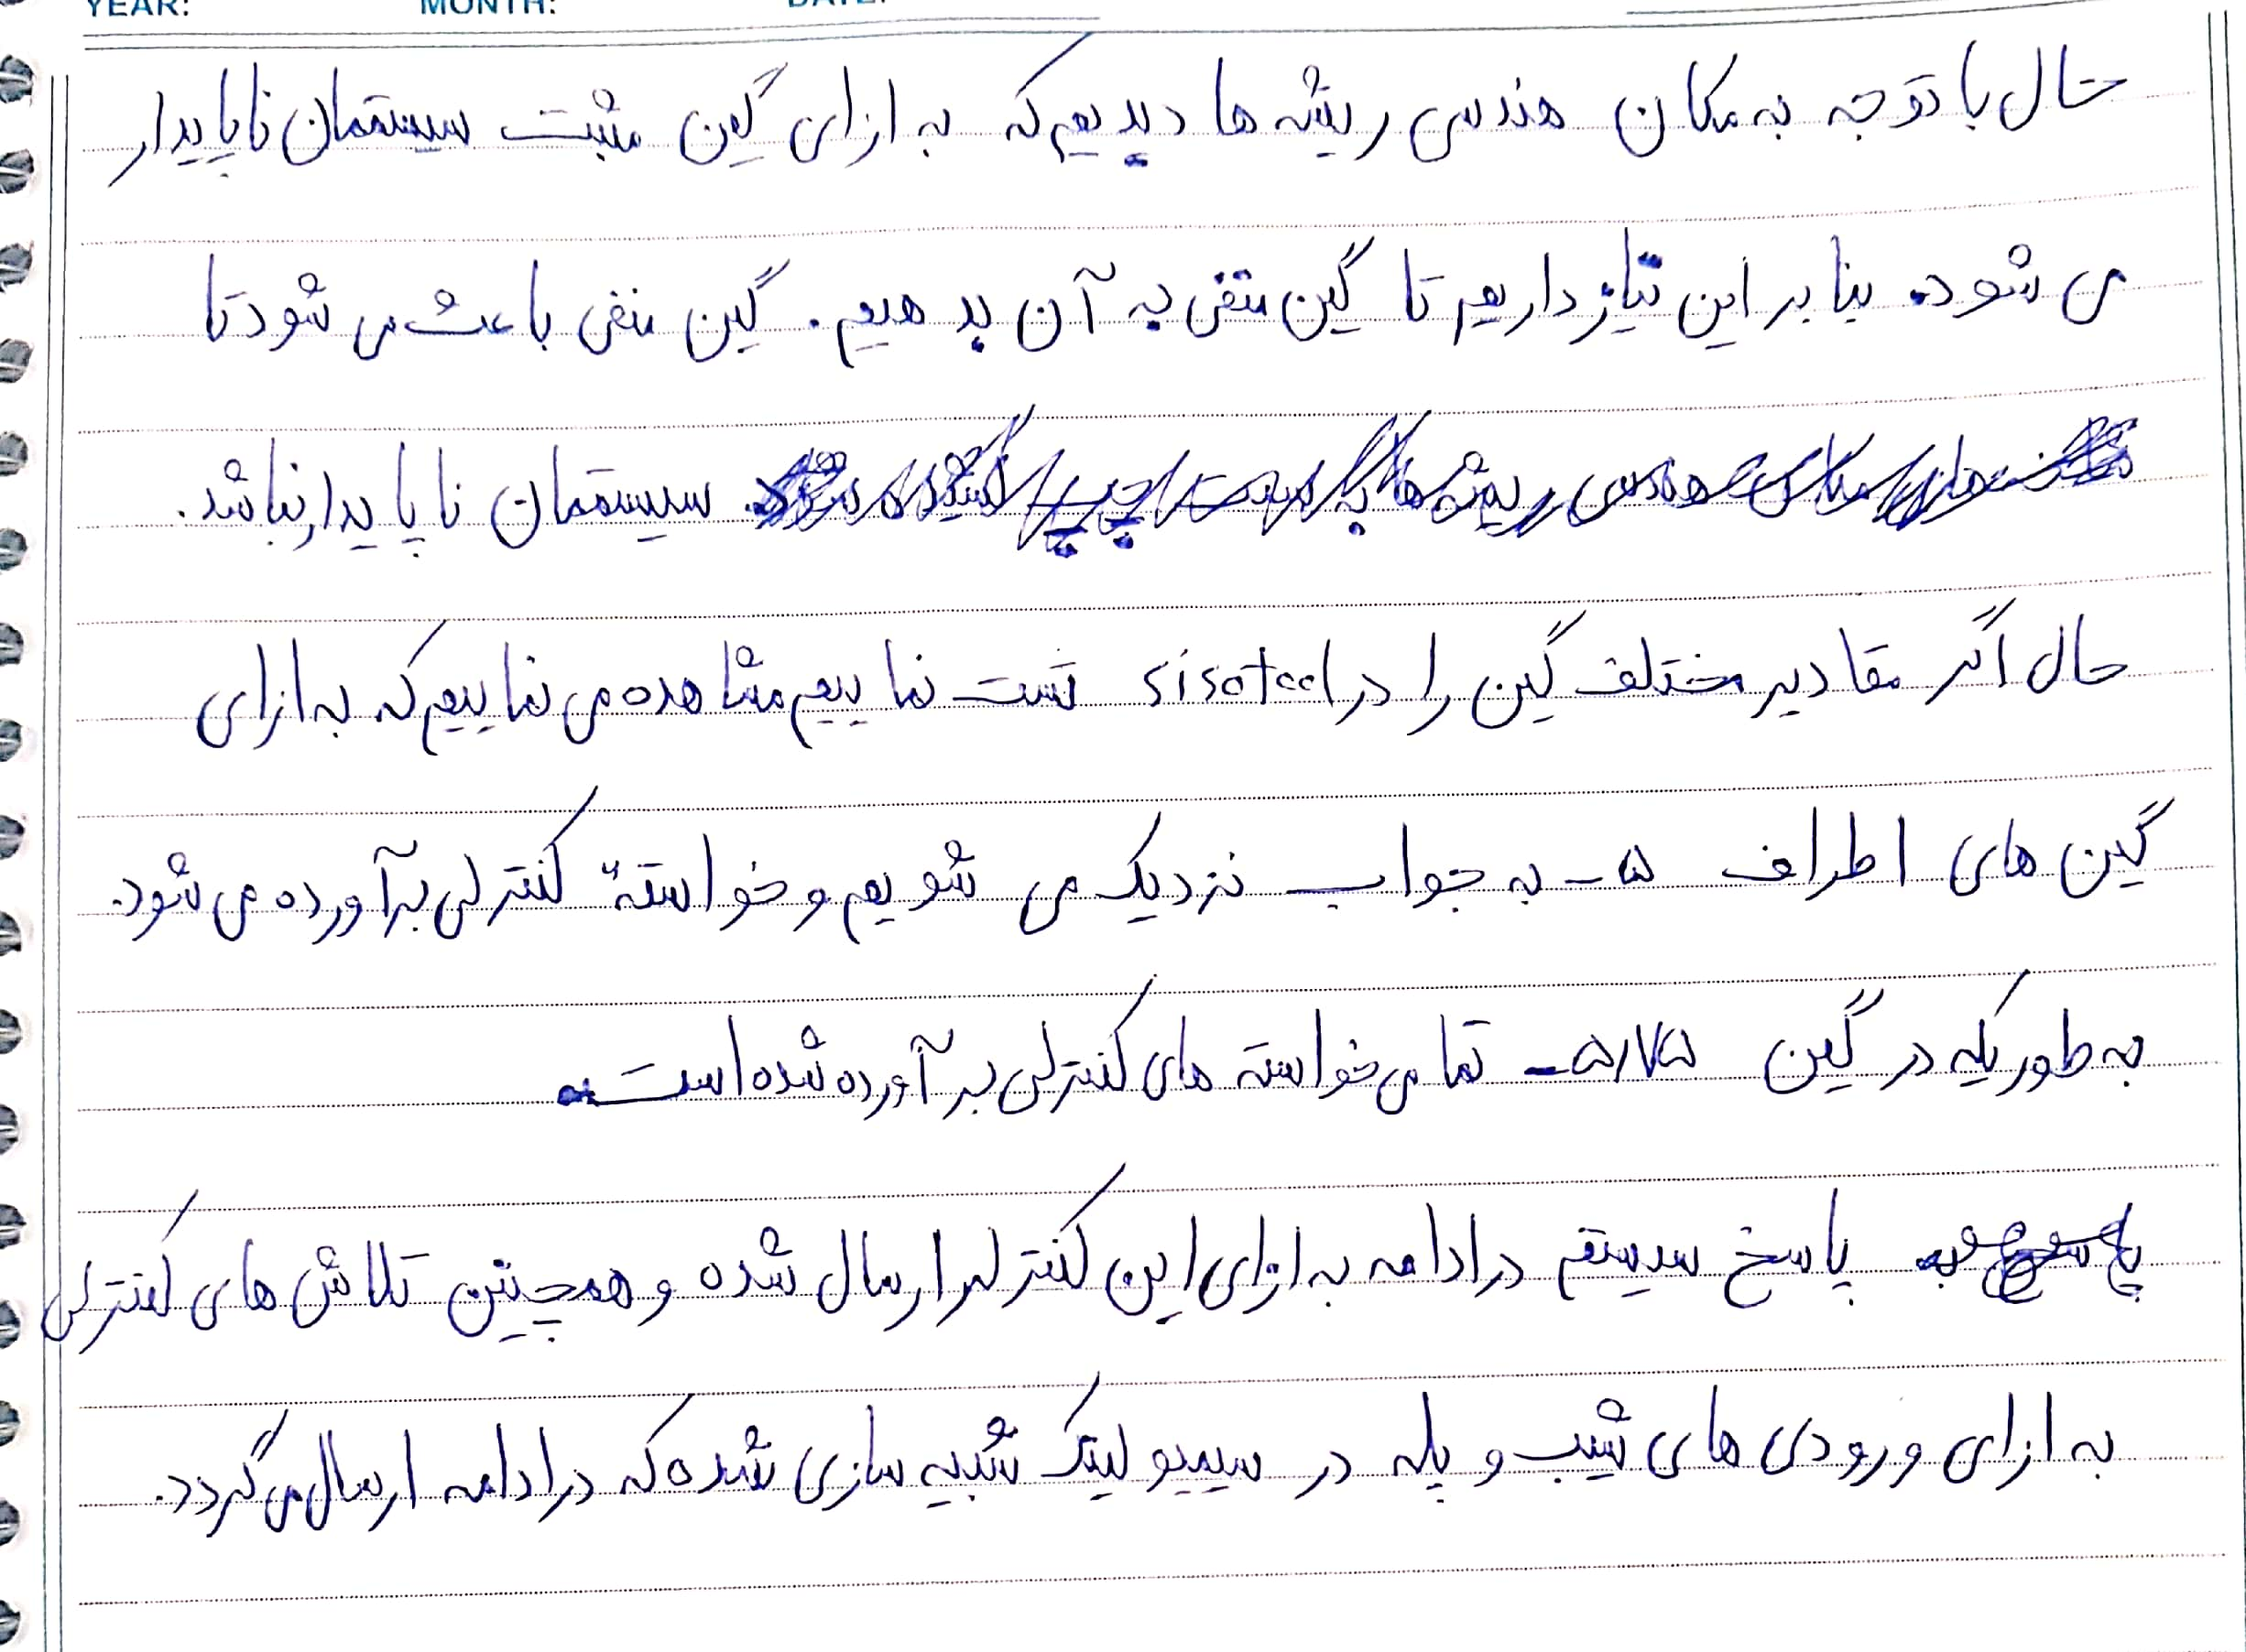 YEAR: MONTH: DATE:
حال با توجه به مکان هندسی ریشه ها دیدیم که به ازای گین مثبت سیستممان ناپایدار
می شود. بنابر این نیاز داریم تا گین منفی به آن بدهیم. گین منفی باعث می شود تا
سیستممان ناپایدار نباشد.
حال اگر مقادیر مختلف گین را در sisotool تست نماییم مشاهده می نماییم که به ازای
گین های اطراف ۵- به جواب نزدیک می شویم و خواستهٔ کنترلی برآورده می شود.
به طوریکه در گین ۵/۷۵- تمامی خواسته های کنترلی برآورده شده است.
پاسخ سیستم در ادامه به ازای این کنترلر ارسال شده و همچنین تلاش های کنترلی
به ازای ورودی های شیب و پله در سیمیولینک شبیه سازی شده که در ادامه ارسال می گردد.